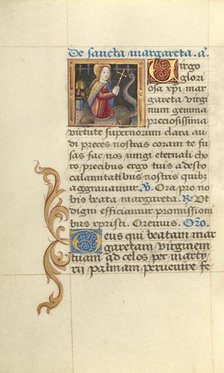 De sancta margareta. a̅.
Virgo
glorio
sa xp̅i mar
gareta virgi
num gemma
preciosissima
virtute supernorum clara au
di preces nostras coram te fu
sas fac nos iungi eternali cho
ro precibus ergo tuis a desola
calamitatibus nostris quib3
aggravamur. V̷. Ora pro no
bis beata margareta. R̷. Ut
digni efficiamur promissioni
bus xpristi. Oremus. Or̅o.
Deus qui beatam mar
garetam virginem
tuam ad celos per marty
rij palmam pervenire fe